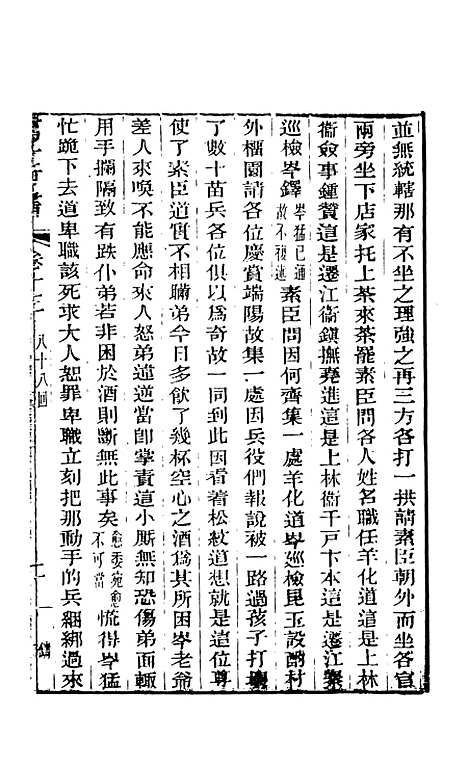 並無統轄那有不坐之理強之再三方各打一拱請素臣朝外而坐各官
兩旁坐下店家托上茶來茶罷素臣問各人姓名職任羊化道這是上林
衞僉事鍾贊這是遷江衞鎭撫堯進這是上林衞千戸卞本這是遷江
巡檢岑鐸岑猛已通故不複述素臣問因何齊集一處羊化道岑巡檢毘玉設酌村
外榴園請各位慶賞端陽故集一處因兵役們報說被一路過孩子打壞
了數十苗兵各位俱以爲奇故一同到此因看着松紋道想就是這位尊
使了素臣道實不相瞞弟今日多飲了幾杯空心之酒爲其所困岑老爺
差人來喚不能應命來人怒弟違逆當卽掌責這小厮無知恐傷弟面輙
用手攔隔致有跌仆弟若非困於酒則斷無此事矣愈委宛愈不可當慌得岑猛
忙跪下去道卑職該死求大人恕罪卑職立刻把那動手的兵綑綁過來
八十八囘